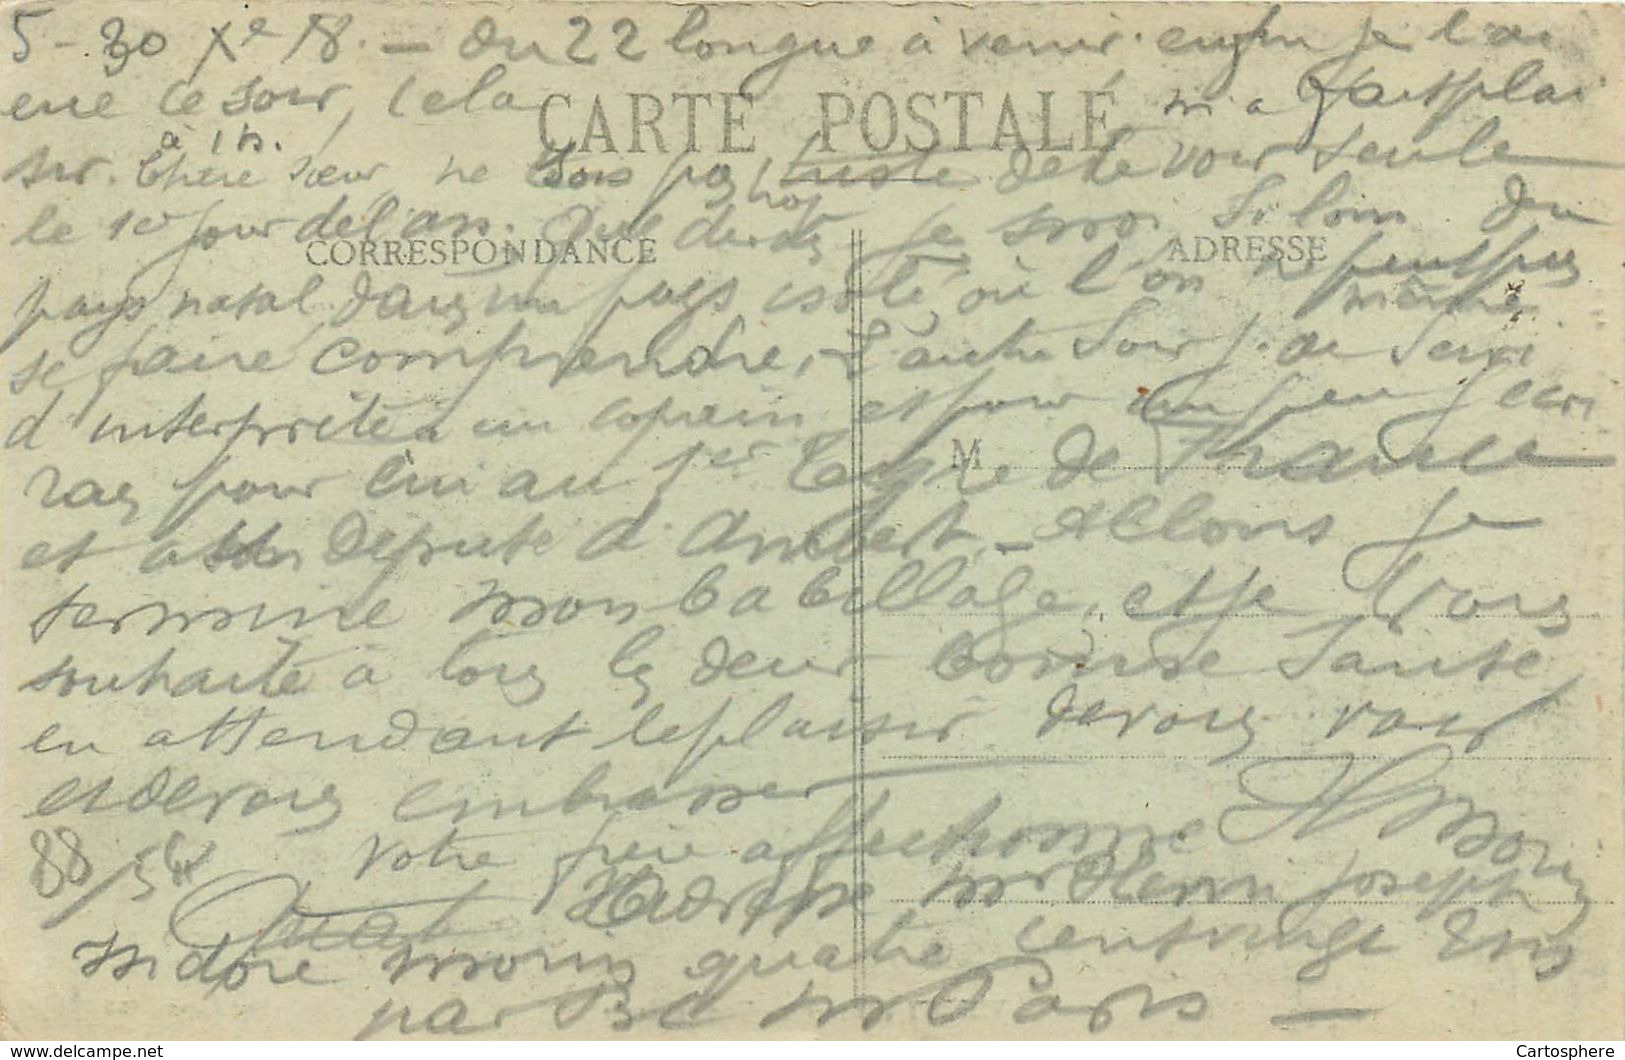 5 - 30 Xe 18. - du 22 longue à venir. enfin je l'ai
eue ce soir, cela m'a fait plai
CARTE POSTALE
à 1 h.
sir. Chère sœur, ne sois pas triste de te voir seule
trop
le 1er jour de l'an. Que dirai je moi si loin du
CORRESPONDANCE
ADRESSE
pays natal dans un pays isolé, où l'on ne peut pas
même
se faire comprendre, L'autre soir j. ai servi
d'interprète à un copain et pour un peu j'écri
M
rais pour lui au 1er de France
et député d'Ambert - Allons je
termine mon babillage, et je vous
souhaite à tous les deux bonne santé
en attendant le plaisir de vous voir
et de vous embrasser
88/54 Votre frère affectionné H Morin
L'adresse Mr Henri Joseph
Isidore Morin quatre cent vingt
par B. C. M Paris -
www.delcampe.net
Cartosphere